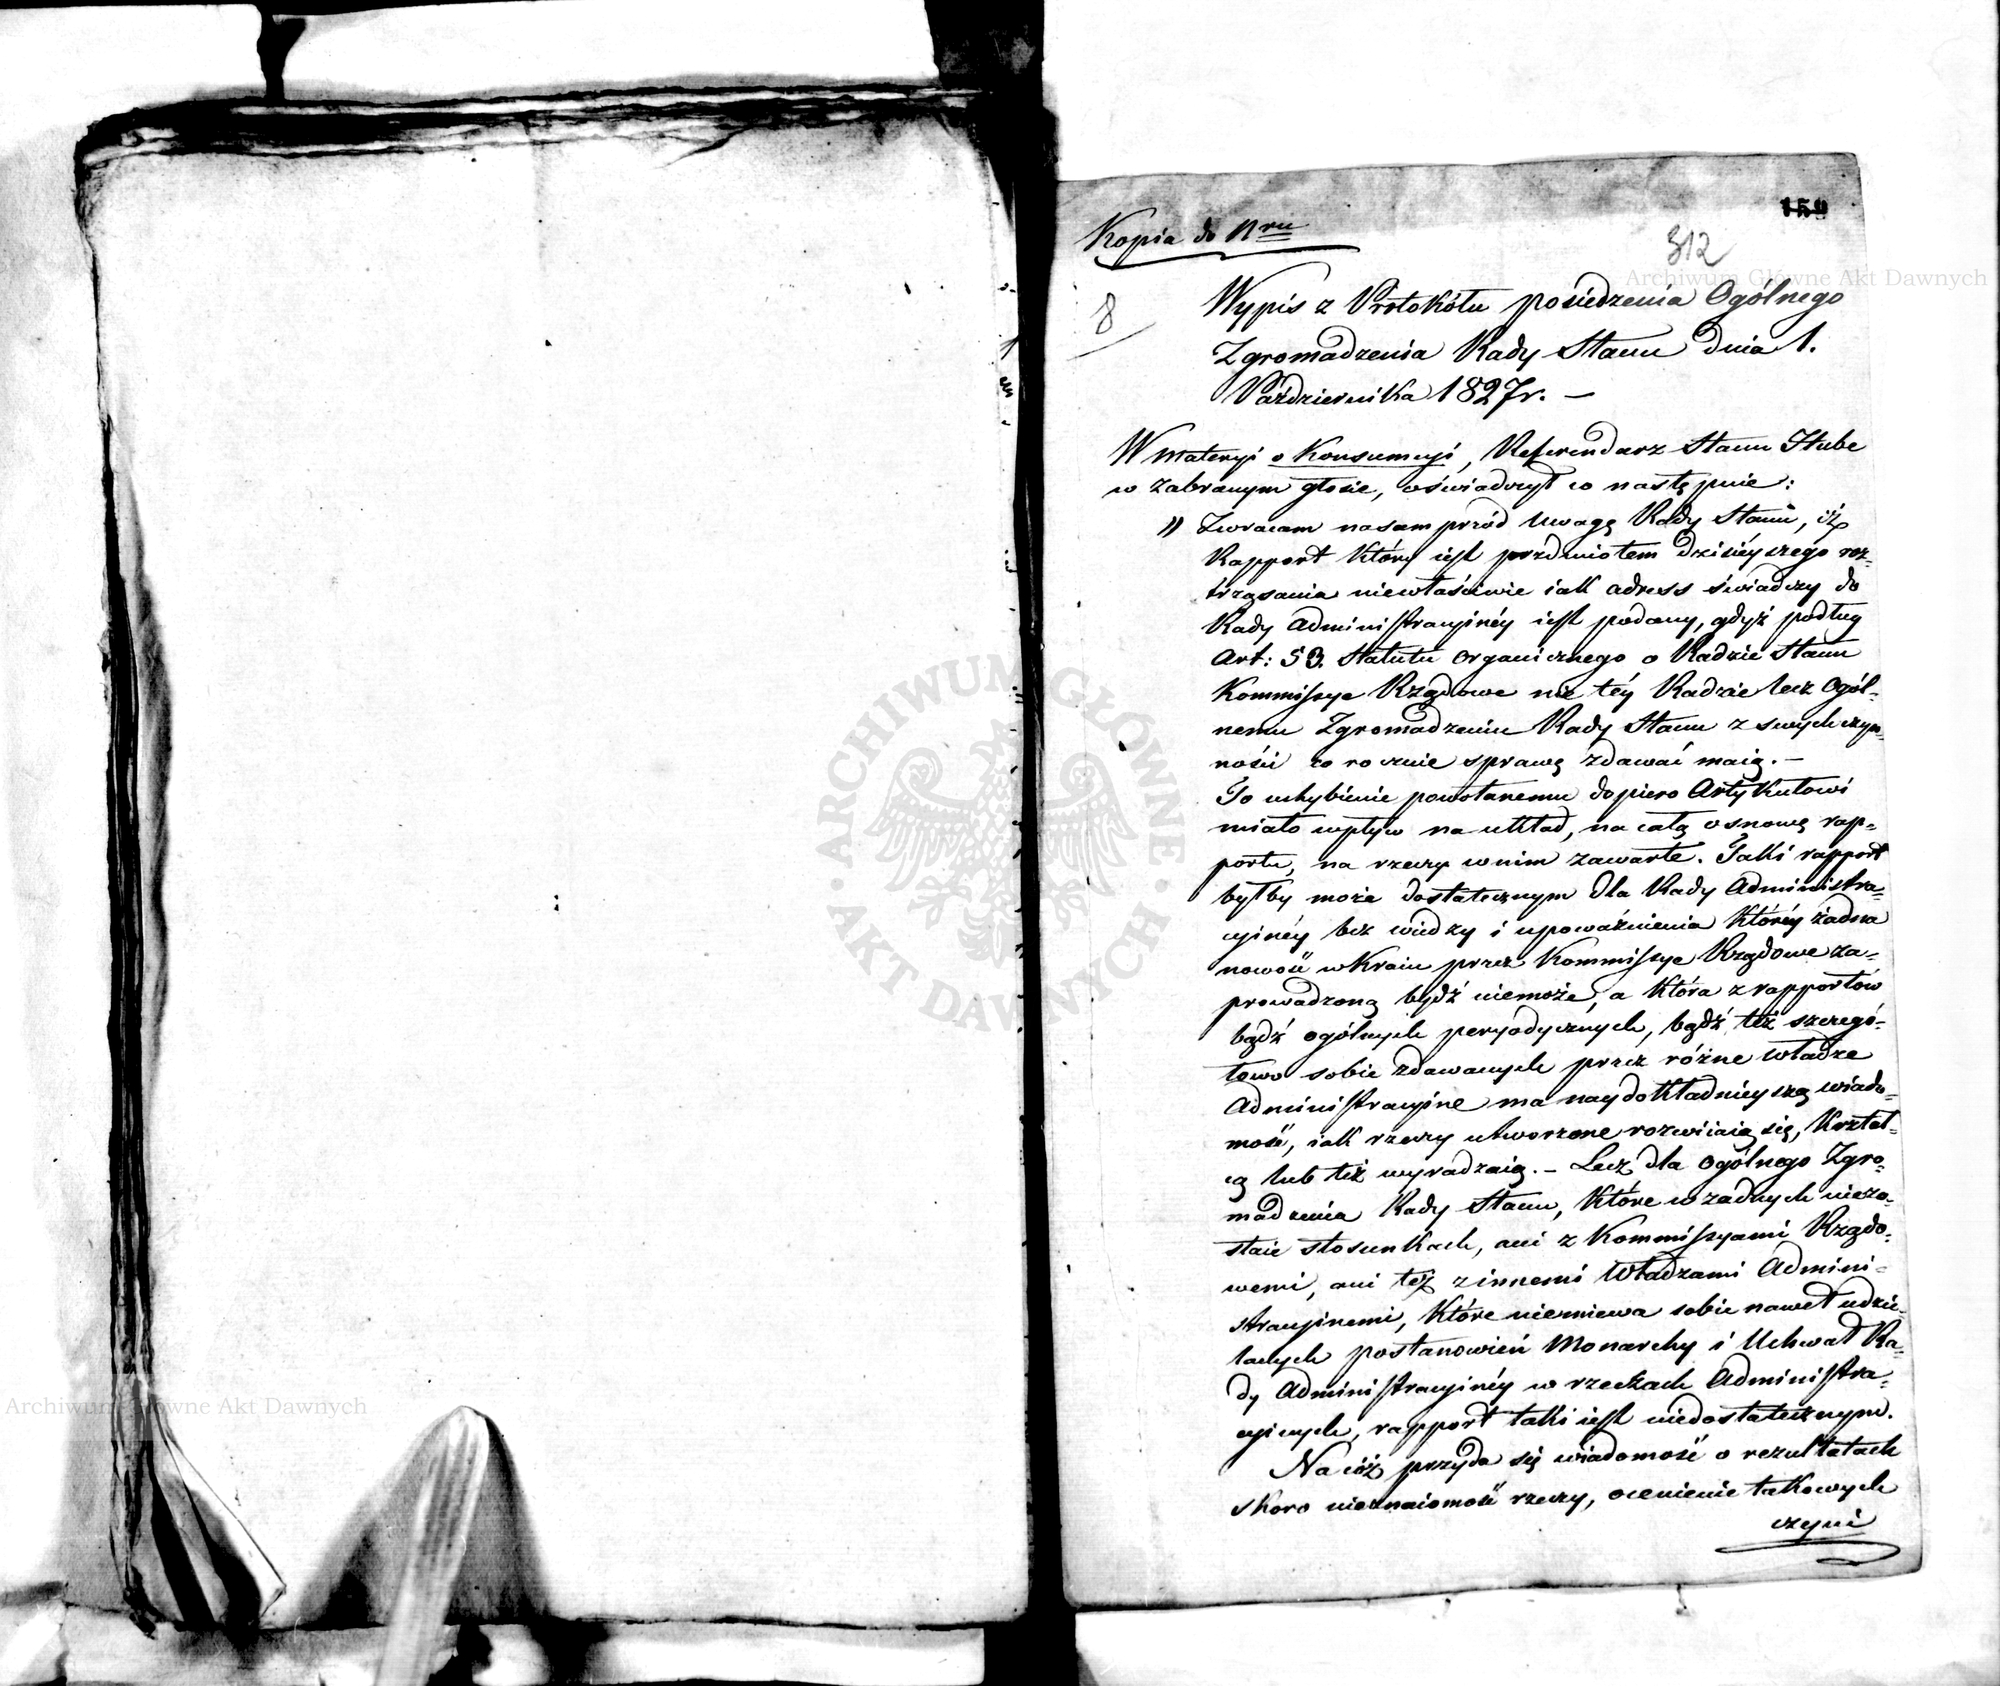 159
Kopia do Nru
312
8
Wypis z Protokółu posiedzenia Ogólnego
Zgromadzenia Rady Stanu dnia 1.
Października 1827r. –
W materyi o Konsumcyi, Referendarz Stanu Hube
w zabranym głosie, oświadczył co następuie:
" Zwracam nasamprzód uwagę Rady Stanu, iż
Rapport który iest przedmiotem dzisiéyszego roz-
trząsania niewłaściwie iak adress świadczy do
Rady Administracyinéy iest podany, gdyż podług
Art: 53. Statutu organicznego o Radzie Stanu
Kommissye Rządowe nie téy Radzie lecz Ogól-
nemu Zgromadzeniu Rady Stanu z swych czyn-
ności co rocznie sprawę zdawać maią. –
To uchybienie powołanemu dopiero Artykułowi
miało wpływ na układ, na całą osnowę rap-
portu, na rzeczy w nim zawarte. Taki rapport
byłby może dostatecznym dla Rady Administra-
cyinéy bez wiedzy i upoważnienia któréy żadna
nowość w Kraiu przez Kommissye Rządowe za-
prowadzoną bydź niemoże, a która z rapportów
bądź ogólnych peryodycznych, bądź też szczegó-
łowo sobie zdawanych przez różne władze
Administracyine ma naydokładnieyszą wiado-
mość, iak rzeczy utworzone rozwiiaią się, kształ-
cą lub też wyradzaią. – Lecz dla ogólnego Zgro-
madzenia Rady Stanu, które w żadnych niezo-
staie stosunkach, ani z Kommissyami Rządo-
wemi, ani też z innemi Władzami Admini-
stracyinemi, które niemiewa sobie nawet udzie-
lanych postanowień Monarchy i Uchwał Ra-
dy Administracyinéy w rzeczach Administra-
cyinych, rapport taki iest niedostatecznym.
Na cóż przyda się wiadomość o rezultatach
skoro nieznaiomość rzeczy, ocenienie takowych
czyni
Archiwum Główne Akt Dawnych
Archiwum Główne Akt Dawnych
ARCHIWUM GŁÓWNE · AKT DAWNYCH ·